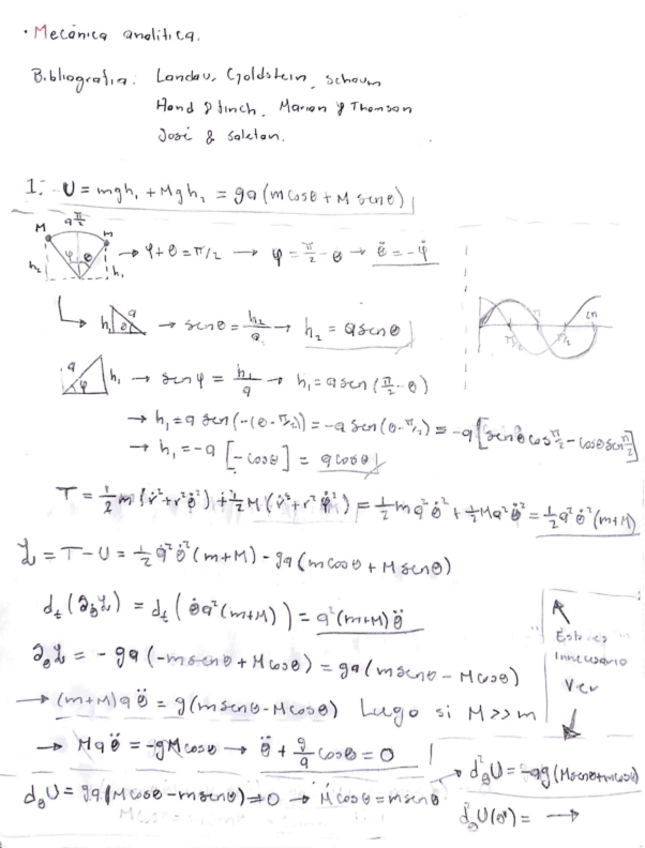 · Mecánica analítica.
Bibliografía: Landau, Goldstein, schaum
Hand & finch, Marion y Thomson
José & saletan.
1: U = mgh₁ + Mgh₂ = ga(m cosθ + M senθ)
a π/2
M m
h₂ φ θ h₁
→ φ+θ = π/2 → φ = π/2 - θ → θ̈ = -φ̈
h₂ a θ → senθ = h₂/a → h₂ = a senθ
a φ h₁ → sen φ = h₁/a → h₁ = a sen(π/2 - θ)
→ h₁ = a sen(-(θ-π/2)) = -a sen(θ-π/2) = -a[senθ cos π/2 - cosθ sen π/2]
→ h₁ = -a[-cosθ] = a cosθ
T = ½m(ṙ²+r²θ̇²) + ½M(ṙ²+r²φ̇²) = ½ma²θ̇² + ½Ma²θ̇² = ½a²θ̇²(m+M)
ℒ = T - U = ½a²θ̇²(m+M) - ga(m cosθ + M senθ)
dₜ(∂θ̇ ℒ) = dₜ(θ̇a²(m+M)) = a²(m+M)θ̈
∂θ ℒ = -ga(-m senθ + M cosθ) = ga(m senθ - M cosθ)
→ (m+M)aθ̈ = g(m senθ - M cosθ) Luego si M>>m
→ Maθ̈ = -gM cosθ → θ̈ + g/a cosθ = 0
dθU = ga(M cosθ - m senθ) = 0 → M cosθ = m senθ
Esto es
innecesario
Ver
→ d²θU = -ag(M senθ + m cosθ)
d²θU(θ') = →